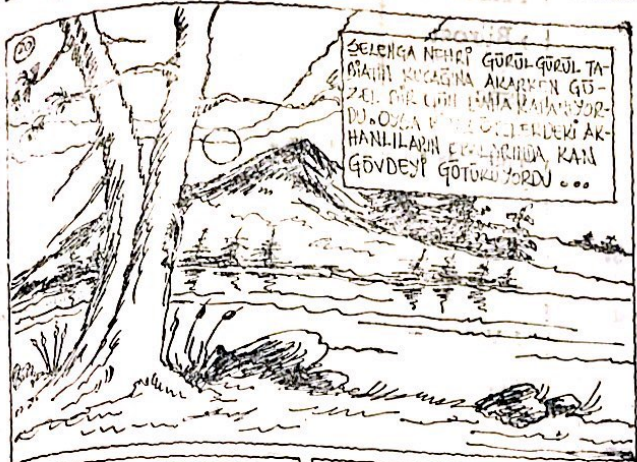 20
SELENGA NEHRİ GÜRÜL GÜRÜL TA-
BİATIN KUCAĞINA AKARKEN GÜ-
ZEL BİR GÜN DAHA
DU. OYSA AK-
HANLILARIN KAN
GÖVDEYİ GÖTÜRÜYORDU ...